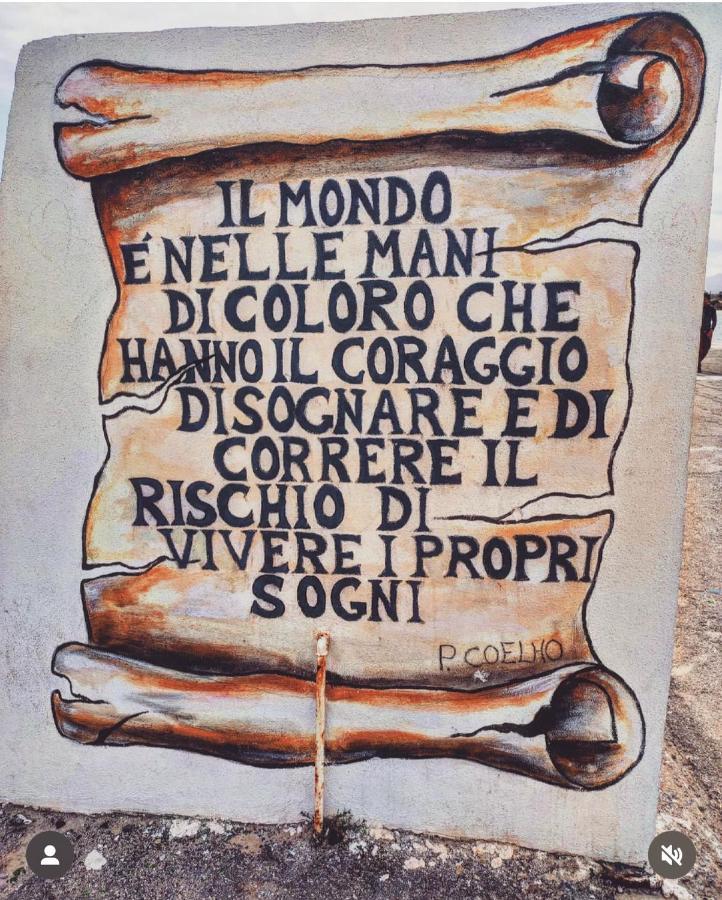 IL MONDO
É NELLE MANI
DI COLORO CHE
HANNO IL CORAGGIO
DI SOGNARE E DI
CORRERE IL
RISCHIO DI
VIVERE I PROPRI
SOGNI
P. COELHO